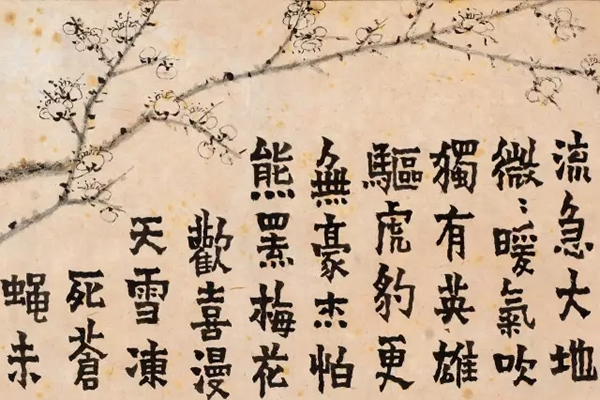 流急大地
微〻暖氣吹
獨有英雄
驅虎豹更
無豪杰怕
熊羆梅花
歡喜漫
天雪凍
死蒼
蝇未